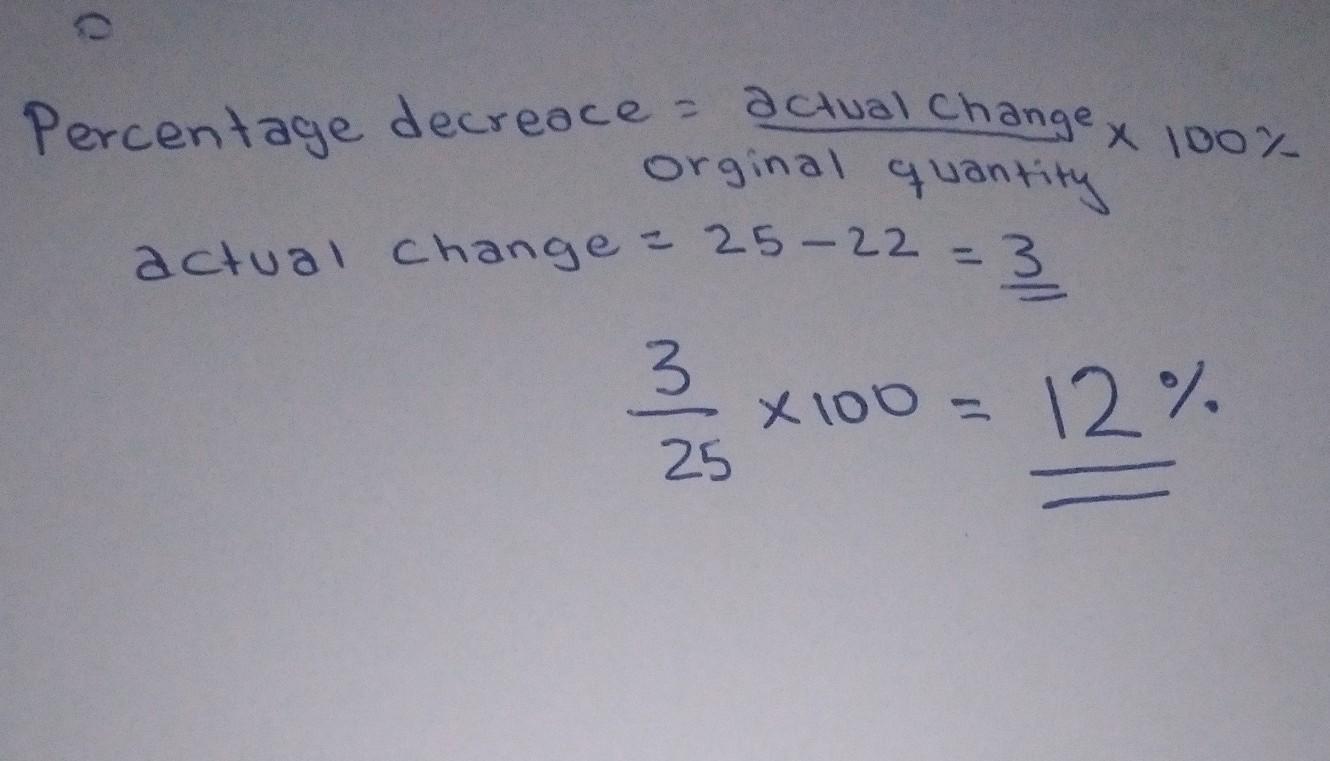 Percentage decreace = actual change x 100%
orginal quantity
actual change = 25 - 22 = 3
3
25
x 100 = 12%